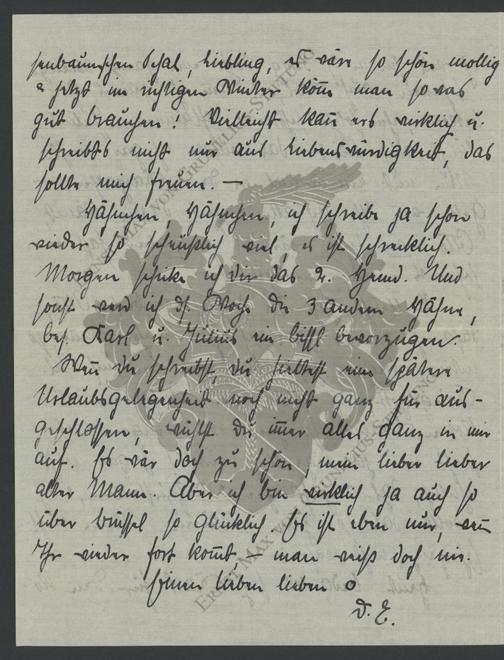 schal, Liebling, es wäre so schön mollig
& jetzt im richtigen Winter kön̄t man so was
gut brauchen! Vielleicht kan̄ ers wirklich u.
schreibts nicht nur aus Liebenswürdigkeit, das
sollte mich freuen. —
Hähnchen, Hähnchen, ich schreibe ja schon
wieder so scheusslich viel, es ist schrecklich.
Morgen schicke ich dir das 2. Hemd. Und
sonst werd ich ds. Woche die 3 andern Hähne,
bes. Karl u. Julius ein bissl bevorzugen.
Wen̄ du schreibst, du hieltest eine spätere
Urlaubsgelegenheit noch nicht ganz für aus-
geschlossen, wühlst du im̄er alles ganz in mir
auf. Es wär doch zu schön mein lieber lieber
alter Mann. Aber ich bin wirklich ja auch so
über bissel so glücklich. Es ist eben nur, wen̄
Ihr wieder fort kom̄t, — man weiss doch nie.
Einen lieben lieben o
D. E.